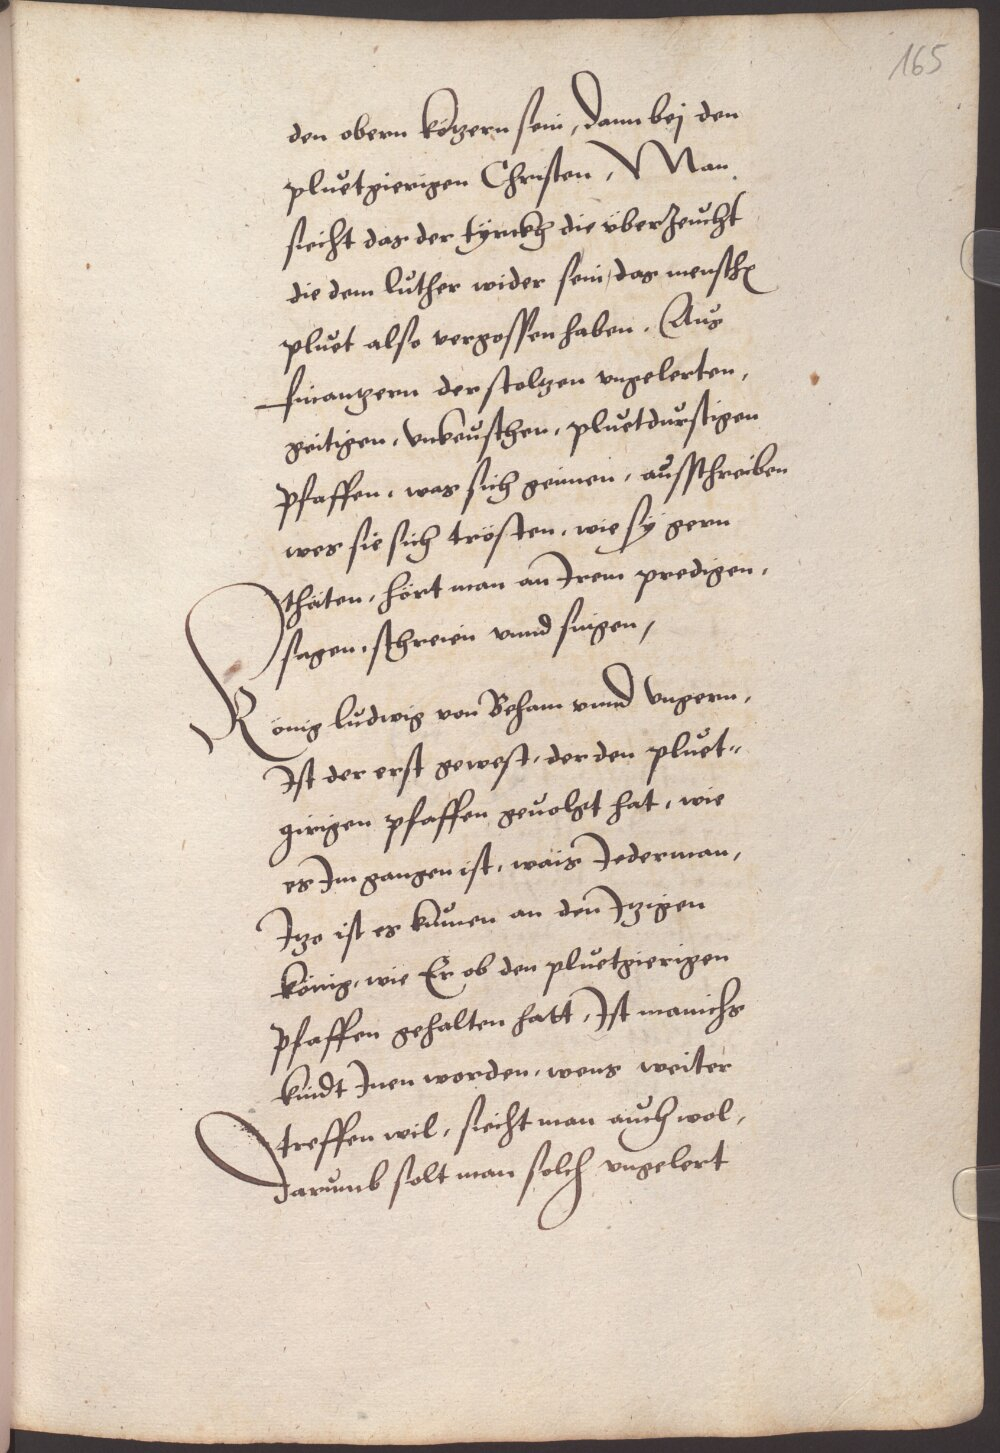 165
den obern kötzern sein, dann bej den
pluetgierigen Christen, Man
siecht das der tÿrckh die uberzeucht
die dem luther wider sein, das mensch
pluet also vergossen haben. Aus
finantzern der stoltzen ungelerten,
geitigen, unkeuschen, pluetdurstigen
Pfaffen, was sich geinen, ausschreiben
wes sie sich trösten, wie sÿ gern
thäten, hört man an Irem predigen,
sagen, schreien unnd singen,
König ludwig von Beham unnd ungern,
Ist der erst gewest, der den pluet-
girigen pfaffen gevolgt hat, wie
es Im gangen ist, wais Jederman,
Itzo ist es kumen an den Itzigen
könig, wie Er ob den pluetgierigen
Pfaffen gehalten hatt, Ist manichs
kindt Inen worden, wens weiter
treffen wil, siecht man auch wol,
darumb solt man solch ungelert